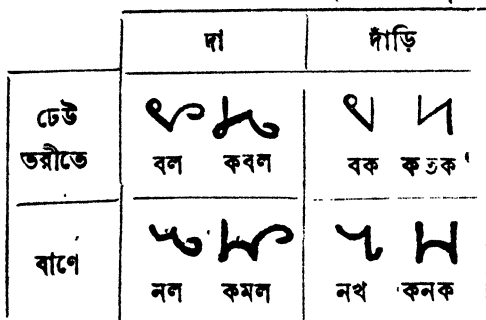 দা দাঁড়ি
ঢেউ
তরীতে
বল কবল বক কতক
বাণে
নল কমল নখ কনক